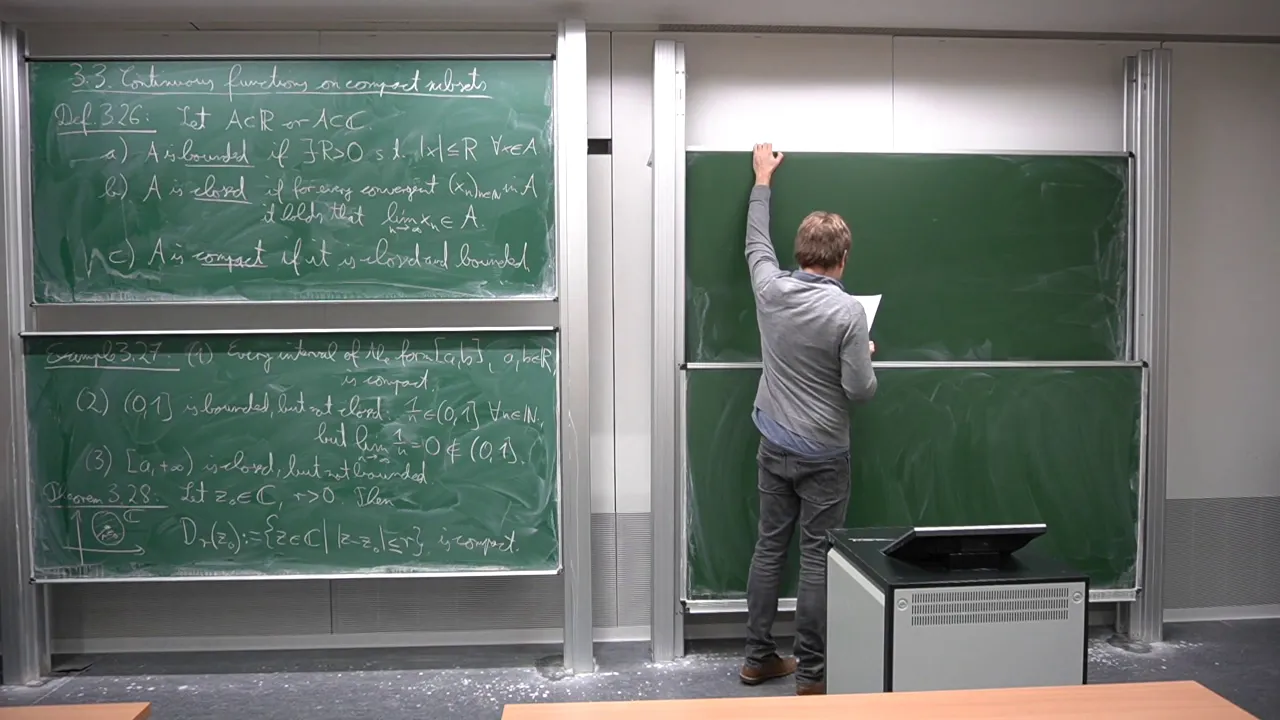 3.3. Continuous functions on compact subsets
Def. 3.26: Let A⊂ℝ or A⊂ℂ.
a) A is bounded if ∃R>0 s.t. |x|≤R ∀x∈A
b) A is closed if for every convergent (xₙ)ₙ∈ℕ in A
it holds that lim n→∞ xₙ ∈ A.
c) A is compact if it is closed and bounded.
Example 3.27. (1) Every interval of the form [a,b], a,b∈ℝ,
is compact.
(2) (0,1] is bounded, but not closed: 1/n ∈(0,1] ∀n∈ℕ,
but lim n→∞ 1/n = 0 ∉ (0,1].
(3) [a,+∞) is closed, but not bounded.
Theorem 3.28: Let z₀∈ℂ, r>0. Then
ℂ
Dᵣ(z₀):={z∈ℂ | |z-z₀|≤r} is compact.